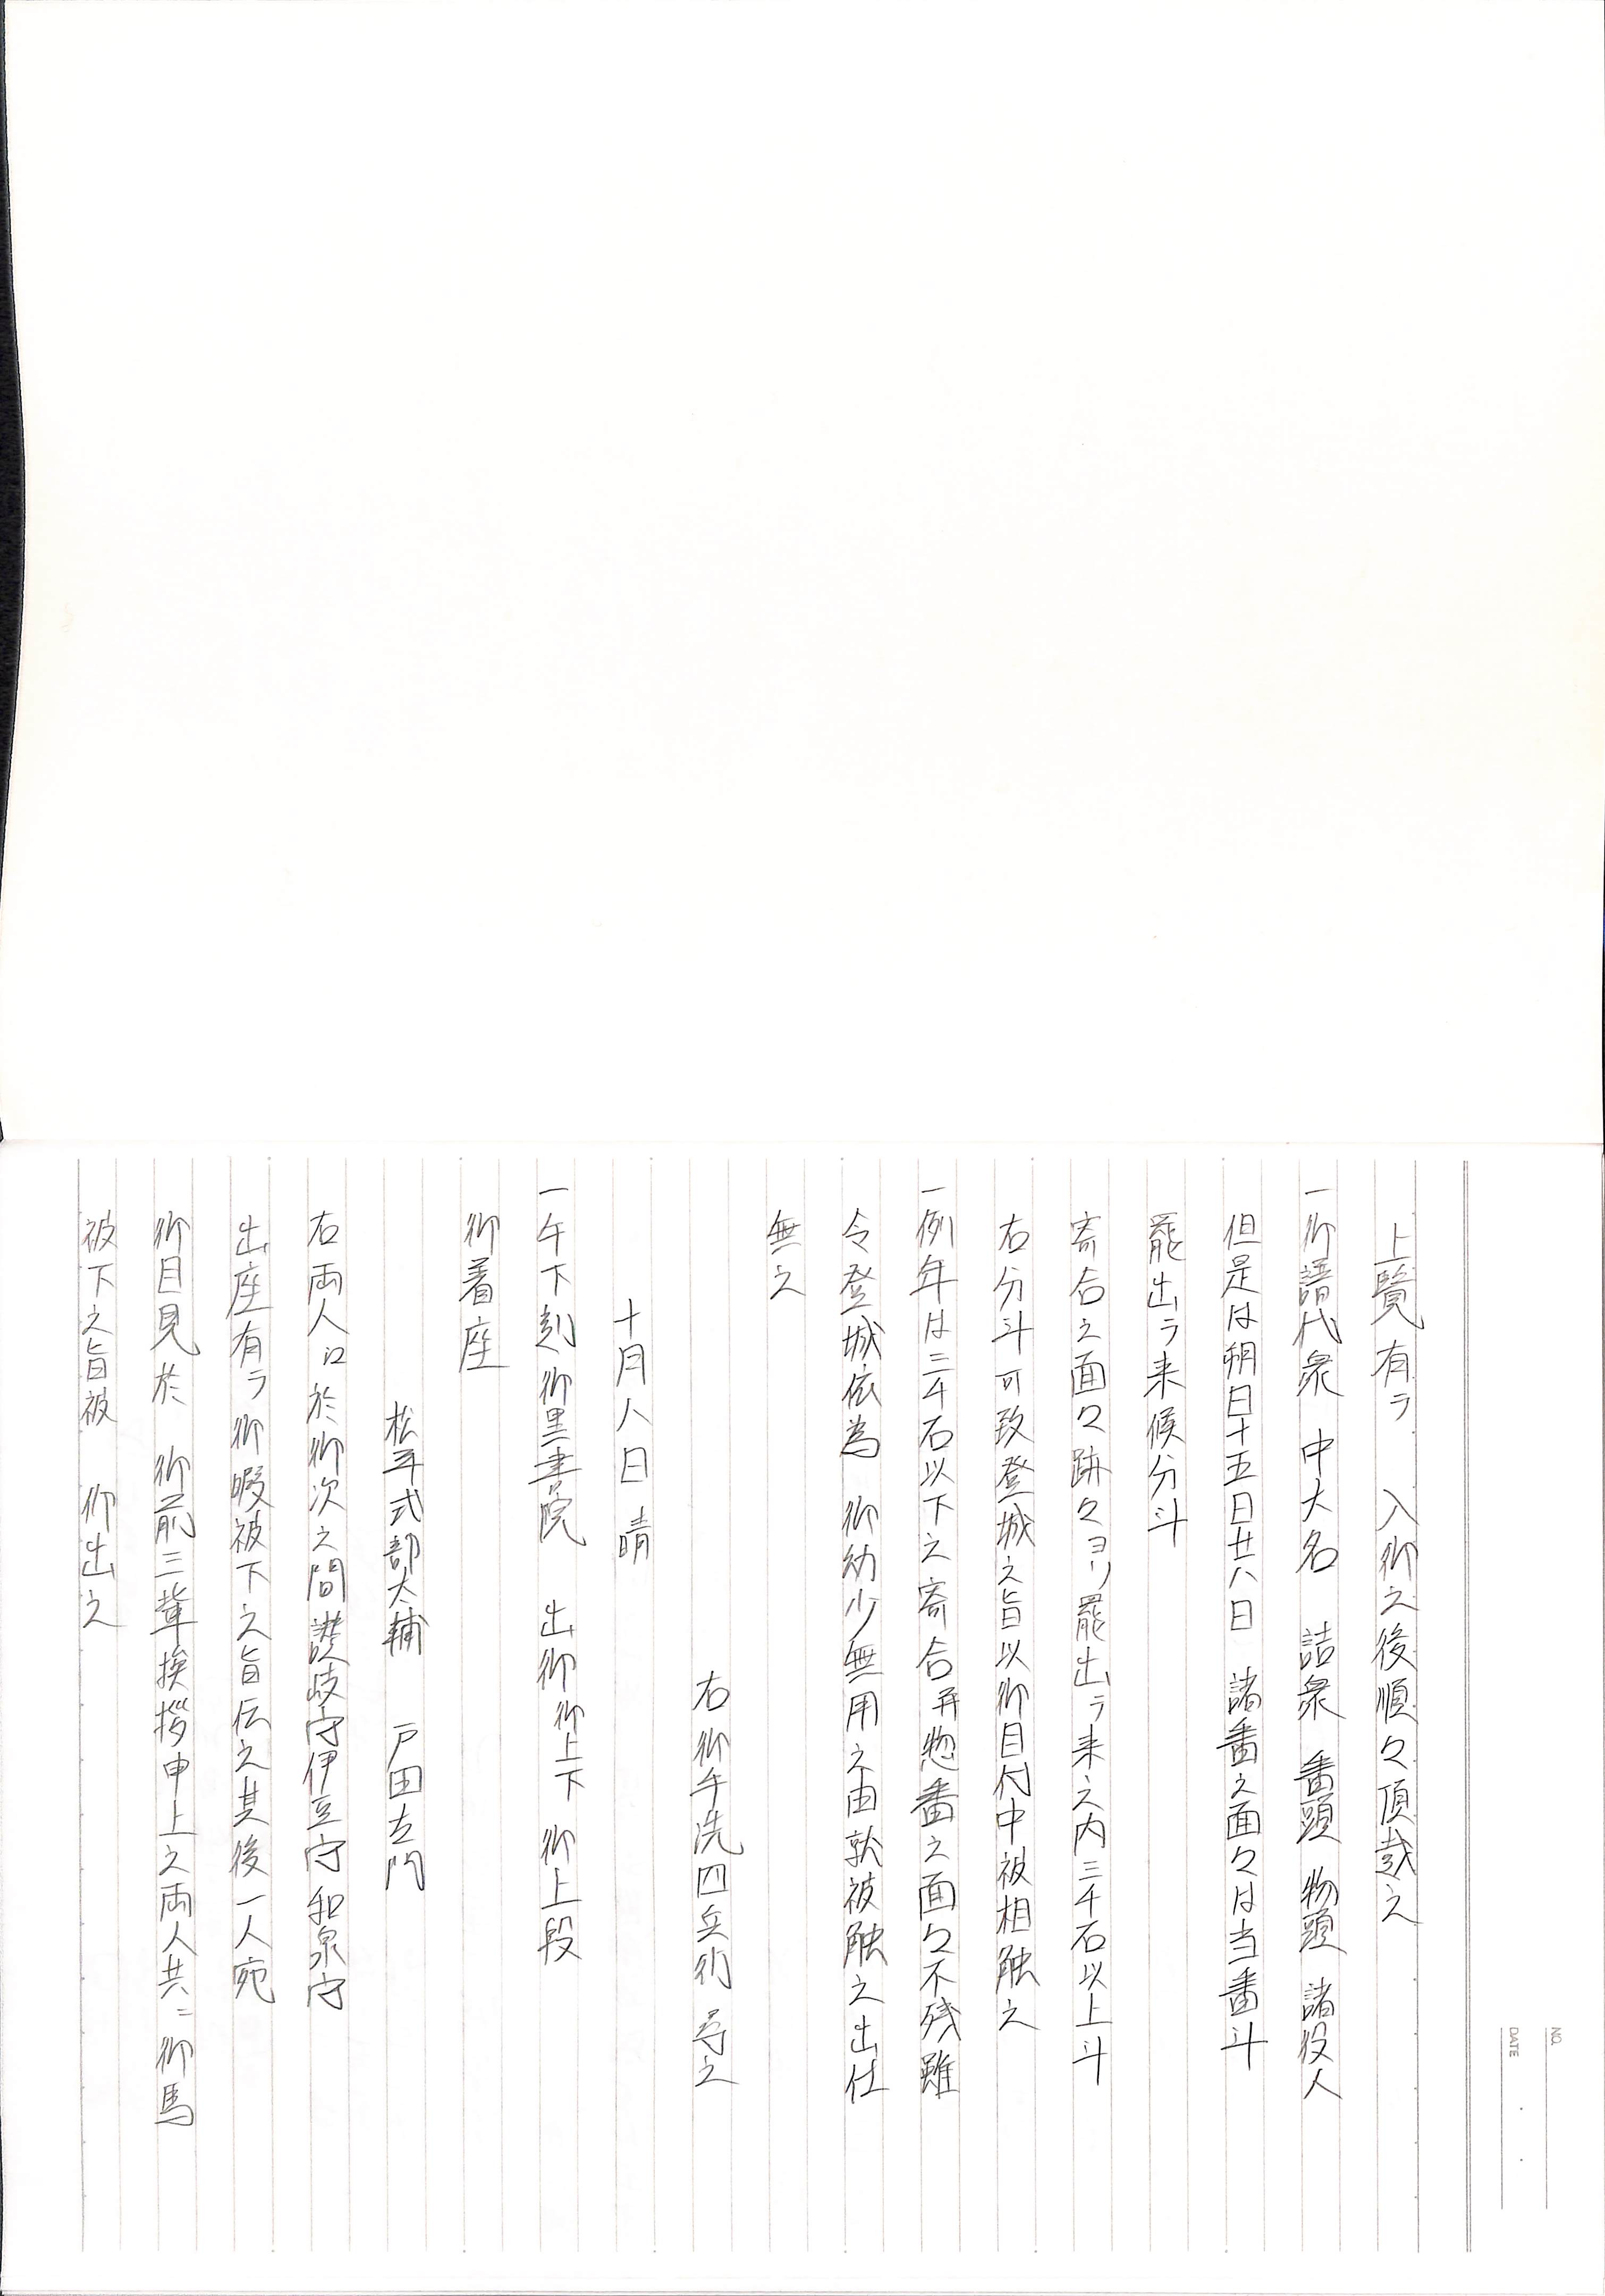 上覧有テ　入御之後順々頂戴之
一御譜代衆　中大名　詰衆　番頭　物頭　諸役人
但是は朔日十五日廿八日　諸番之面々は当番斗
罷出テ来候分斗
寄合之面々跡々ヨリ罷出テ来之内三千石以上斗
右分斗可致登城之旨以御目付中被相触之
一例年は三千石以下之寄合并惣番之面々不残雖
令登城依為　御幼少無用之由就被触之出仕
無之
右御午洗四兵衛尋之
十月八日晴
一午下刻御黒書院　出御御上下　御上段
御着座
松平式部太輔　戸田左門
右両人江於御次之間讃岐守伊豆守和泉守
出座有テ御暇被下之旨伝之其後一人宛
御目見於　御前三輩挨拶申上之両人共ニ御馬
被下之旨被　仰出之
NO.
DATE